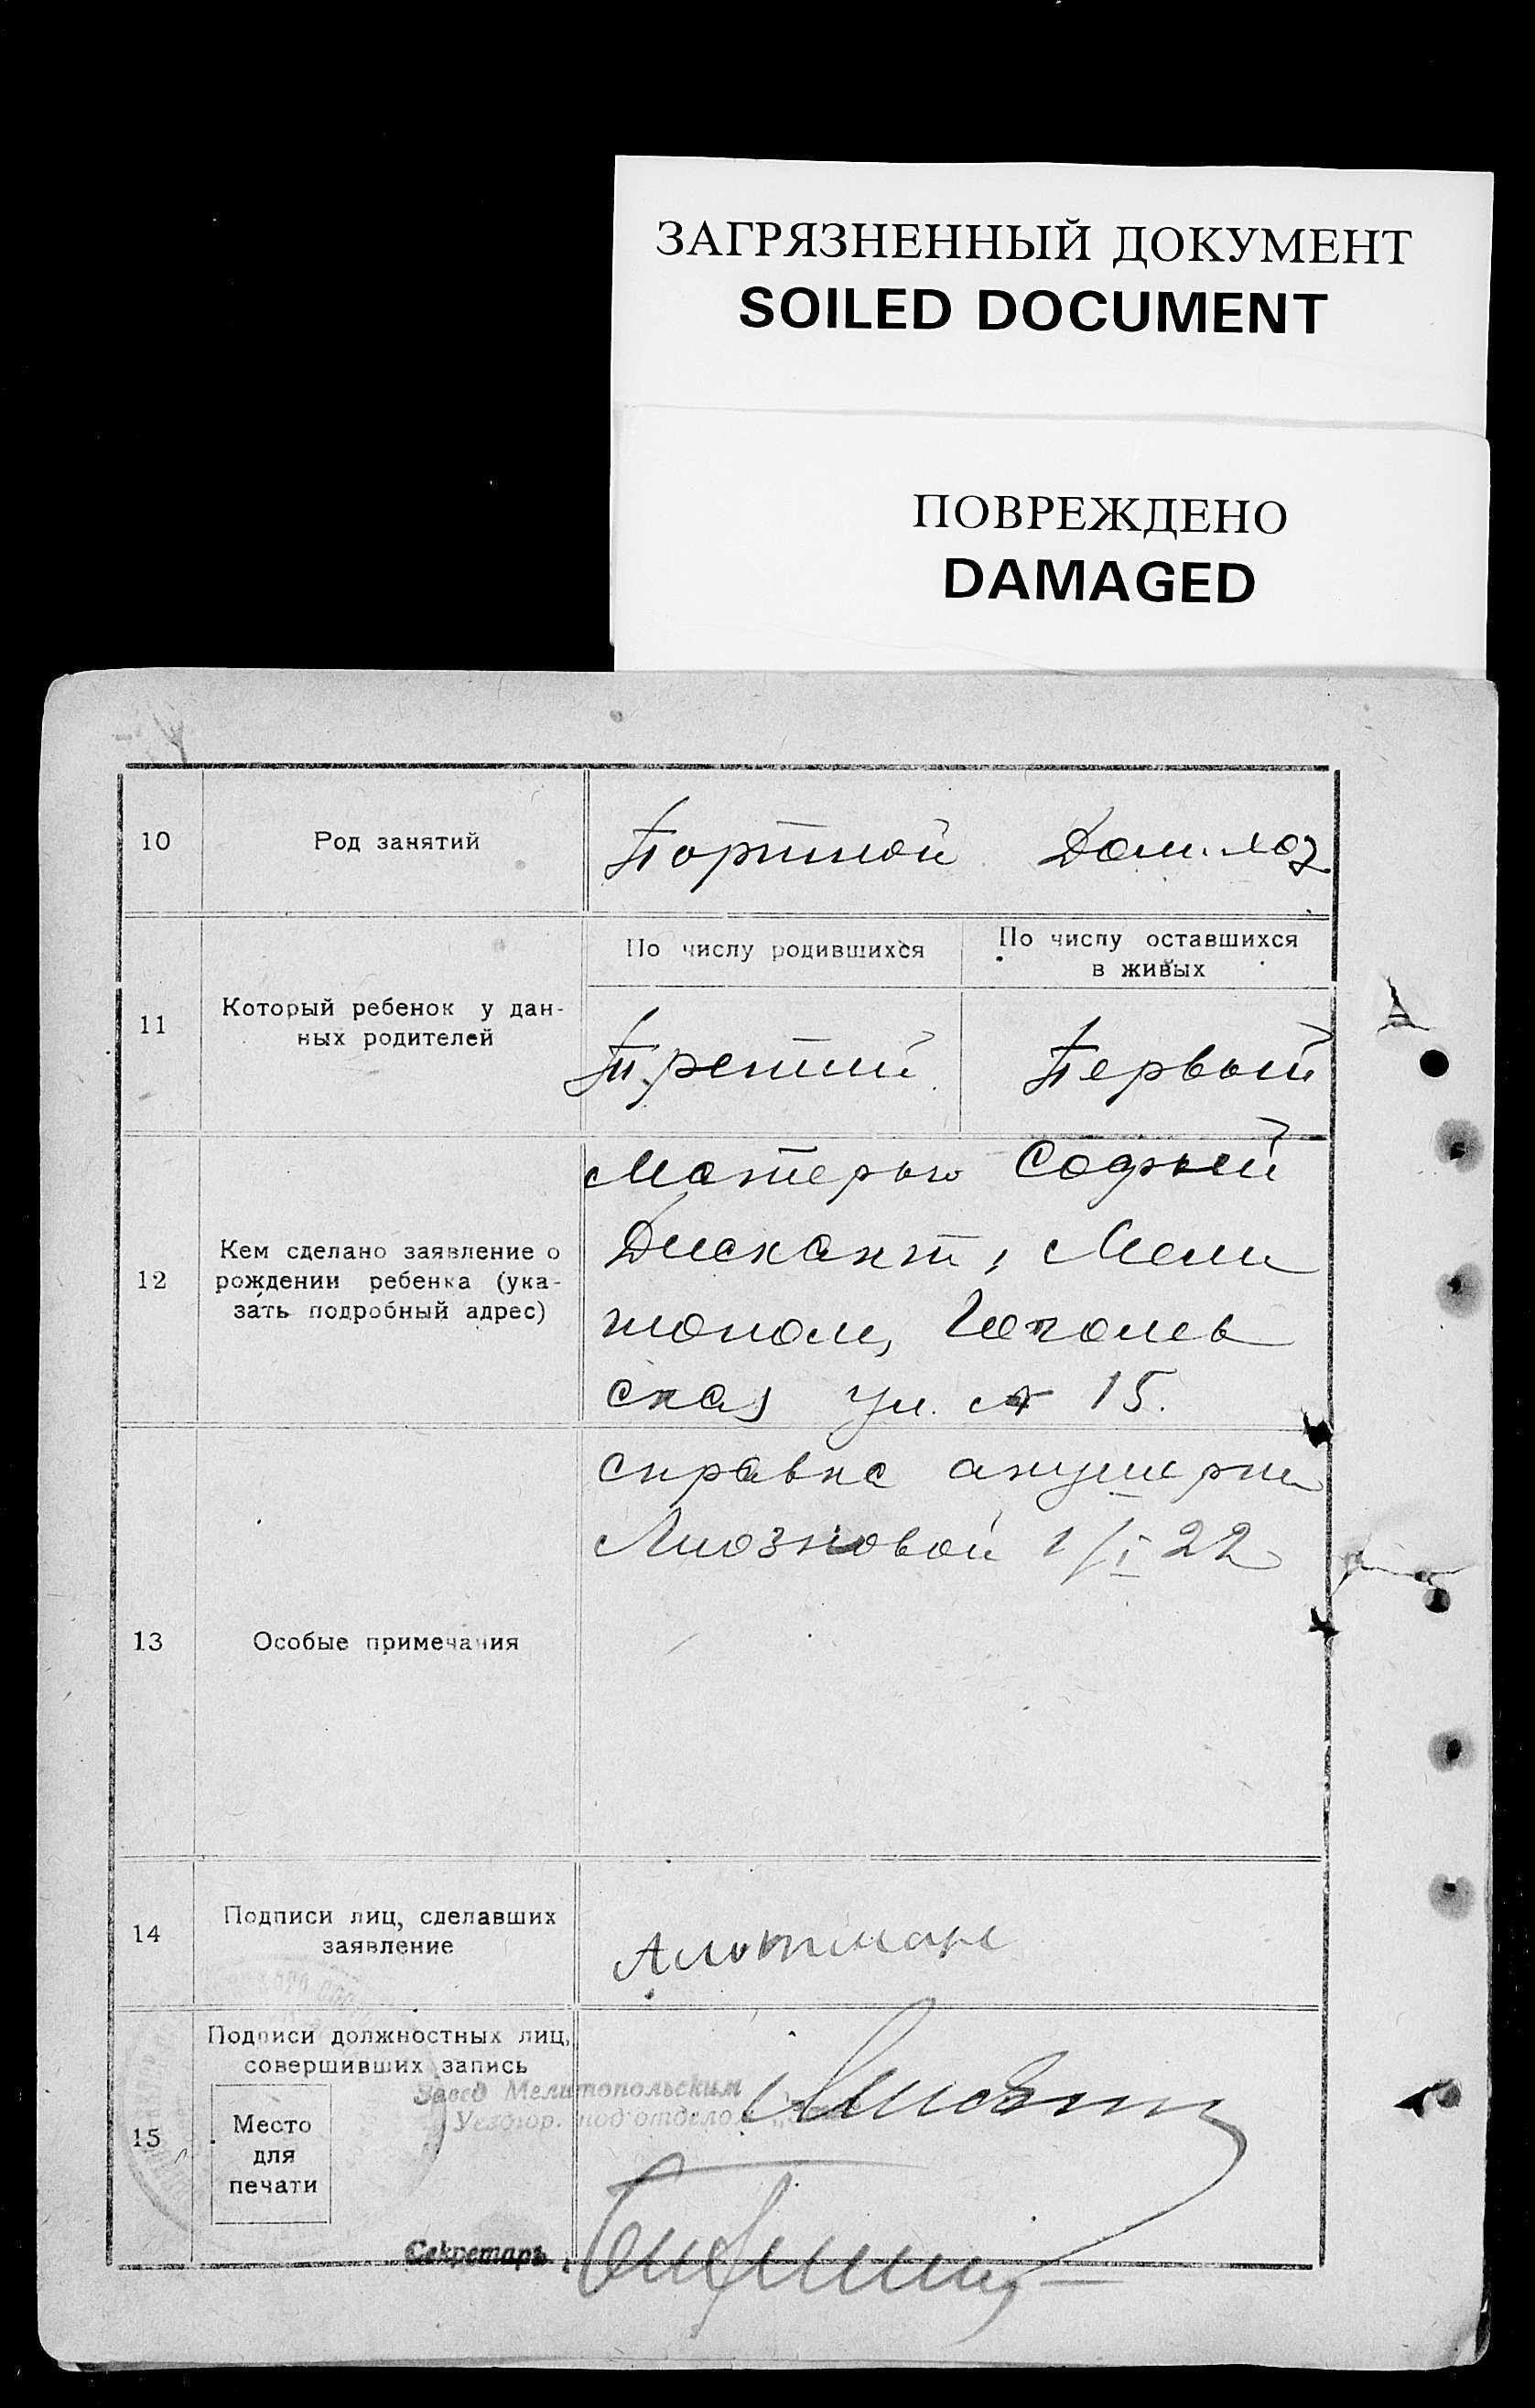 ЗАГРЯЗНЕННЫЙ ДОКУМЕНТ
SOILED DOCUMENT
ПОВРЕЖДЕНО
DAMAGED
10
Род занятий
Портной Дом. хоз
11
Который ребенок у дан-
ных родителей
По числу родившихся
По числу оставшихся
в живых
Третий
Первый
12
Кем сделано заявление о
рождении ребенка (ука-
зать подробный адрес)
Матерью Софьей
Дискант, Мели
тополь, Гоголев
ская ул. № 15.
13
Особые примечания
справка акушерки
Лиозновой 1/I 22
14
Подписи лиц, сделавших
заявление
15
Подписи должностных лиц,
совершивших запись
Завед Мелитопольским
под'отделом
Место
для
печати
Секретарь